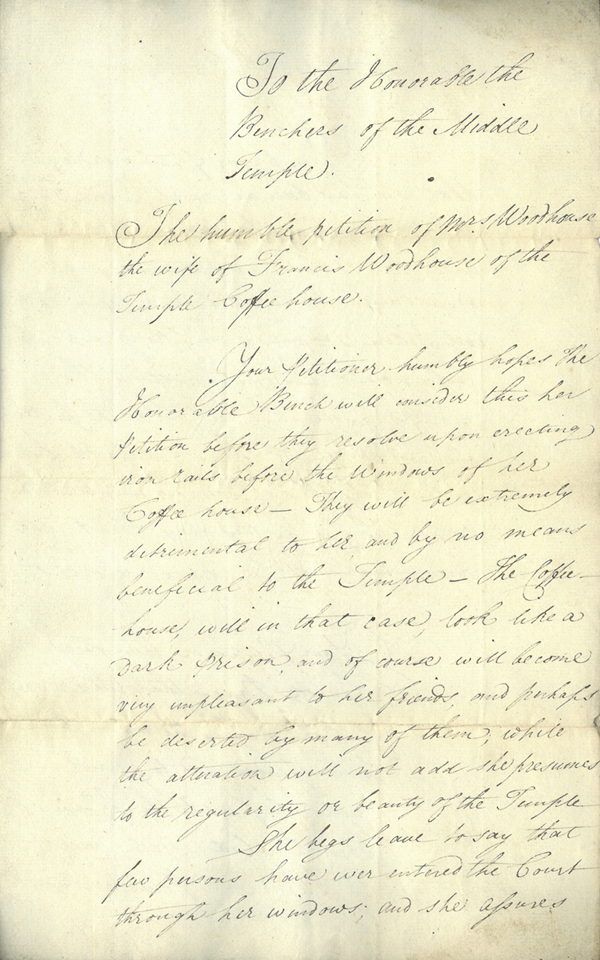 To the Honorable the
Benchers of the Middle
Temple.
The humble petition of Mrs. Woodhouse
the wife of Francis Woodhouse of the
Temple Coffee house.
Your Petitioner humbly hopes the
Honorable Bench will consider this her
Petition before they resolve upon erecting
iron rails before the Windows of her
Coffee house — They will be extremely
detrimental to her, and by no means
beneficial to the Temple — The Coffee-
house, will in that case, look like a
Dark Prison, and of course will become
very unpleasant to her friends, and perhaps
be deserted by many of them, while
the alteration will not add she presumes
to the regularity or beauty of the Temple
She begs leave to say that
few persons have ever entered the Court
through her windows; and she assures